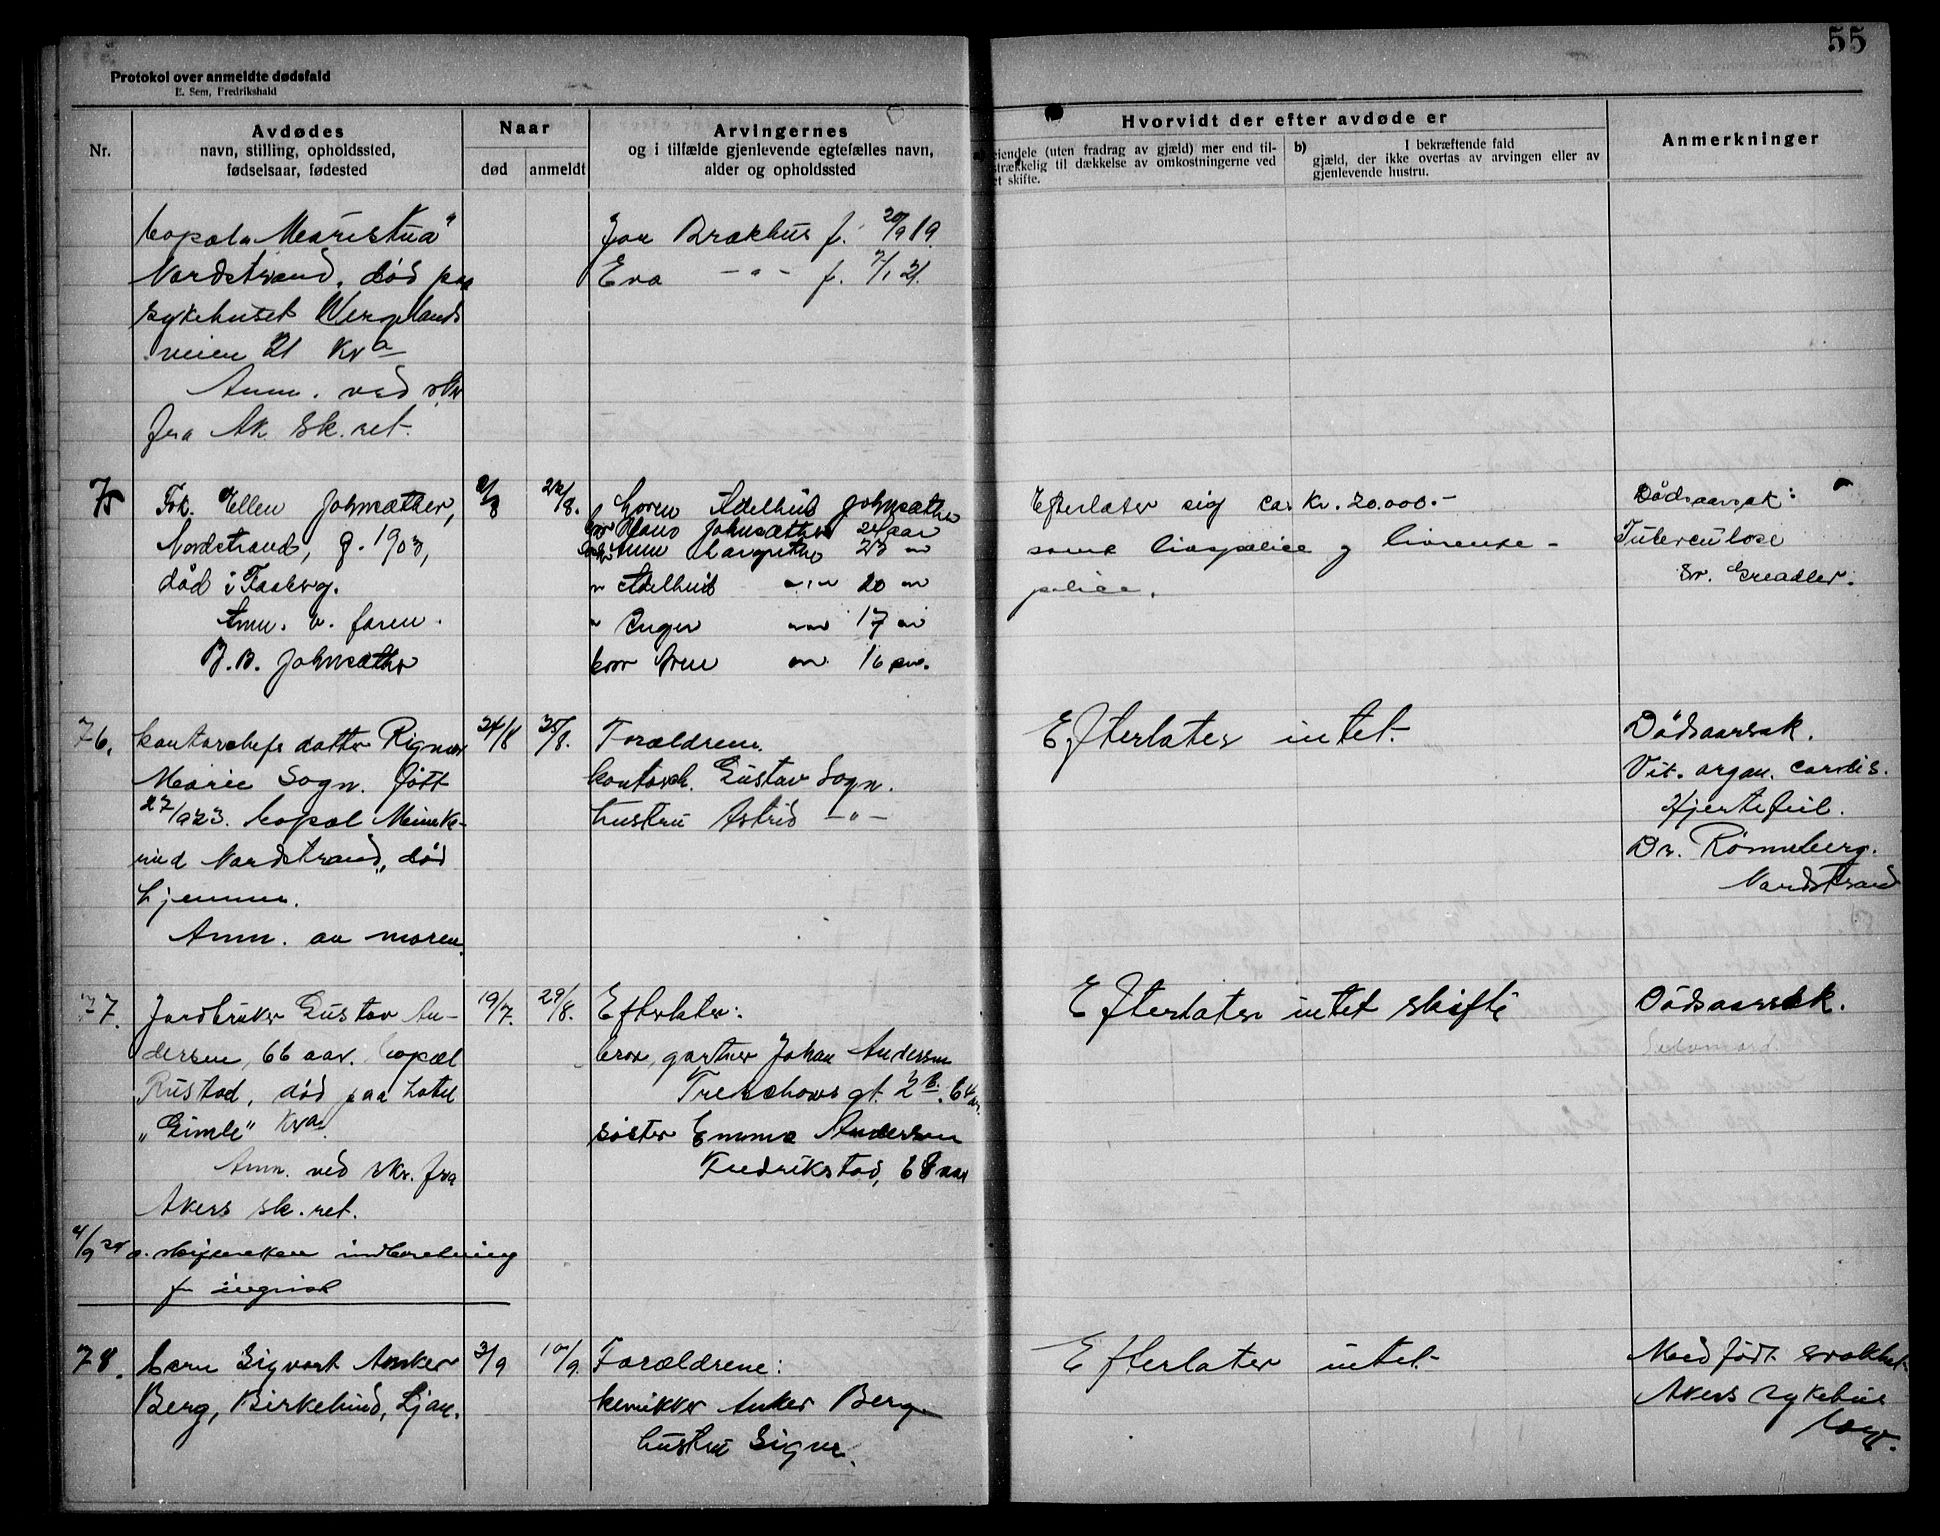 55
Protokol over anmeldte dødsfald
E. Sem, Fredrikshald
Nr.
Avdødes
navn, stilling, opholdssted,
fødselsaar, fødested
Naar
død
anmeldt
Arvingernes
og i tilfælde gjenlevende egtefælles navn,
alder og opholdssted
Hvorvidt der efter avdøde er
eiendele (uten fradrag av gjæld) mer end til-
strækkelig til dækkelse av omkostningerne ved
et skifte.
b) I bekræftende fald
gjæld, der ikke overtas av arvingen eller av
gjenlevende hustru.
Anmerkninger
bopæl „Maristua"
Nordstrand. død paa
sykehuset Wergelands
veien 21 Kra
Anm. ved skr
fra Ak sk. ret.
Jon Brækhus f. 20/9 19.
Eva - " - f. 7/1 21.
75
Frk. Ellen Johnsæther,
Nordstrand, f. 1903,
død i Faaberg.
Anm. v. faren.
B. B. Johnsæther
2/8
22/8.
Moren Adelheid Johnsæther
bror Hans Johnsæther 24 aar
Anne Margrethe 23 "
" Adelheid " " 20 "
" Inger " 17 "
bror Arne " 16 "
Efterlater sig ca. Kr. 20.000.-
samt livspolice og livrente-
police.
Dødsaarsak:
Tuberculose
Dr. Greadler.
76.
kontorchefs datter Rigmor
Marie Sogn. født
27/923. bopæl
Nordstrand, død
hjemme.
Anm. av moren.
24/8
25/8.
Forældrene.
kontorch. Gustav Sogn.
hustru Astrid - " -
Efterlater intet.
Dødsaarsak.
Vit. organ. cordis.
Hjertefeil.
Dr. Rønneberg.
Nordstrand
77.
Jordbruker Gustav An-
dersen, 66 aar. bopæl
Rustad, død paa hotel
„Gimle" Kra.
Anm. ved skr. fra
Akers sk. ret.
4/9 24
indberetning
19/7.
29/8.
Efterlater:
bror, gartner Johan Andersen
Treschows gt. 2 B. 64 aar.
søster Emma Andersen
Fredrikstad, 68 aar
Efterlater intet skifte
Dødsaarsak.
Selvmord.
78.
barn Sigvart Anker
Berg, Birkelund, Ljan.
3/9
10/9.
Forældrene:
kemikker Anker Berg
hustru Signe.
Efterlater intet
Medfødt svakhet
Akers sykehus